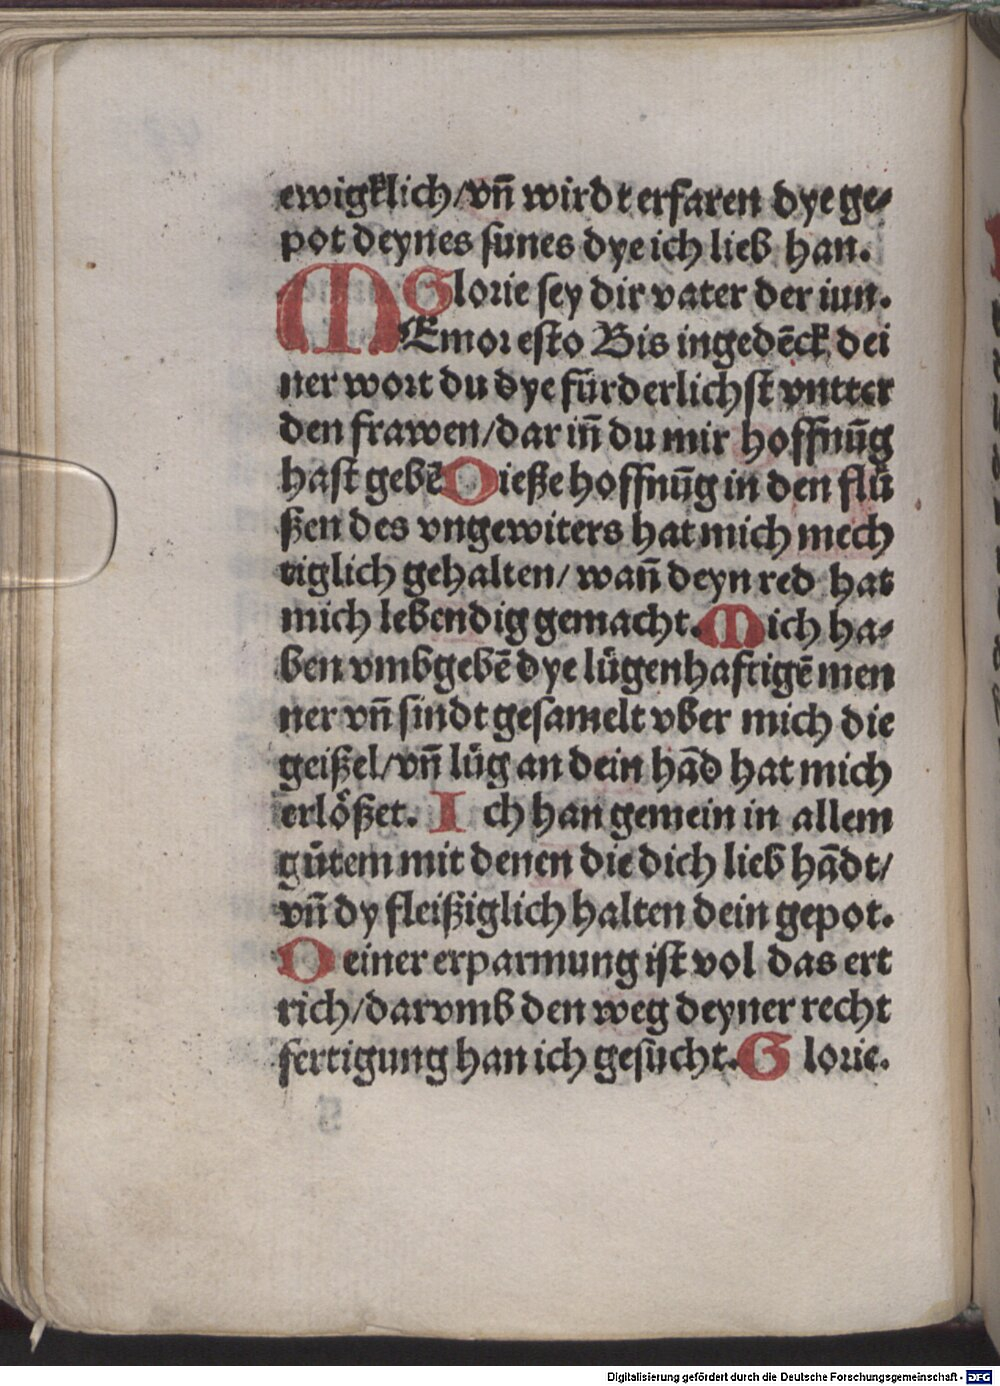 ewigklich/vn̄ wirdt erfaren dye ge⸗
pot deynes sunes dye ich lieb han.
Glorie sey dir vater der iun.
MEmor esto Bis ingedēck dei
ner wort du dye fürderlichst vntter
den frawen/dar in̄ du mir hoffnūg
hast gebē Dieße hoffnūg in den flü
ßen des vngewiters hat mich mech
tiglich gehalten/ wan̄ deyn red hat
mich lebendig gemacht. Mich ha⸗
ben vmbgebē dye lügenhaftigē men
ner vn̄ sindt gesamelt vber mich die
geißel/vn̄ lüg an dein hād hat mich
erlößet. Ich han gemein in allem
gütem mit denen die dich lieb hādt/
vn̄ dy fleißiglich halten dein gepot.
Deiner erparmung ist vol das ert
rich/darvmb den weg deyner recht
fertigung han ich gesucht. Glorie.
Digitalisierung gefördert durch die Deutsche Forschungsgemeinschaft - DFG